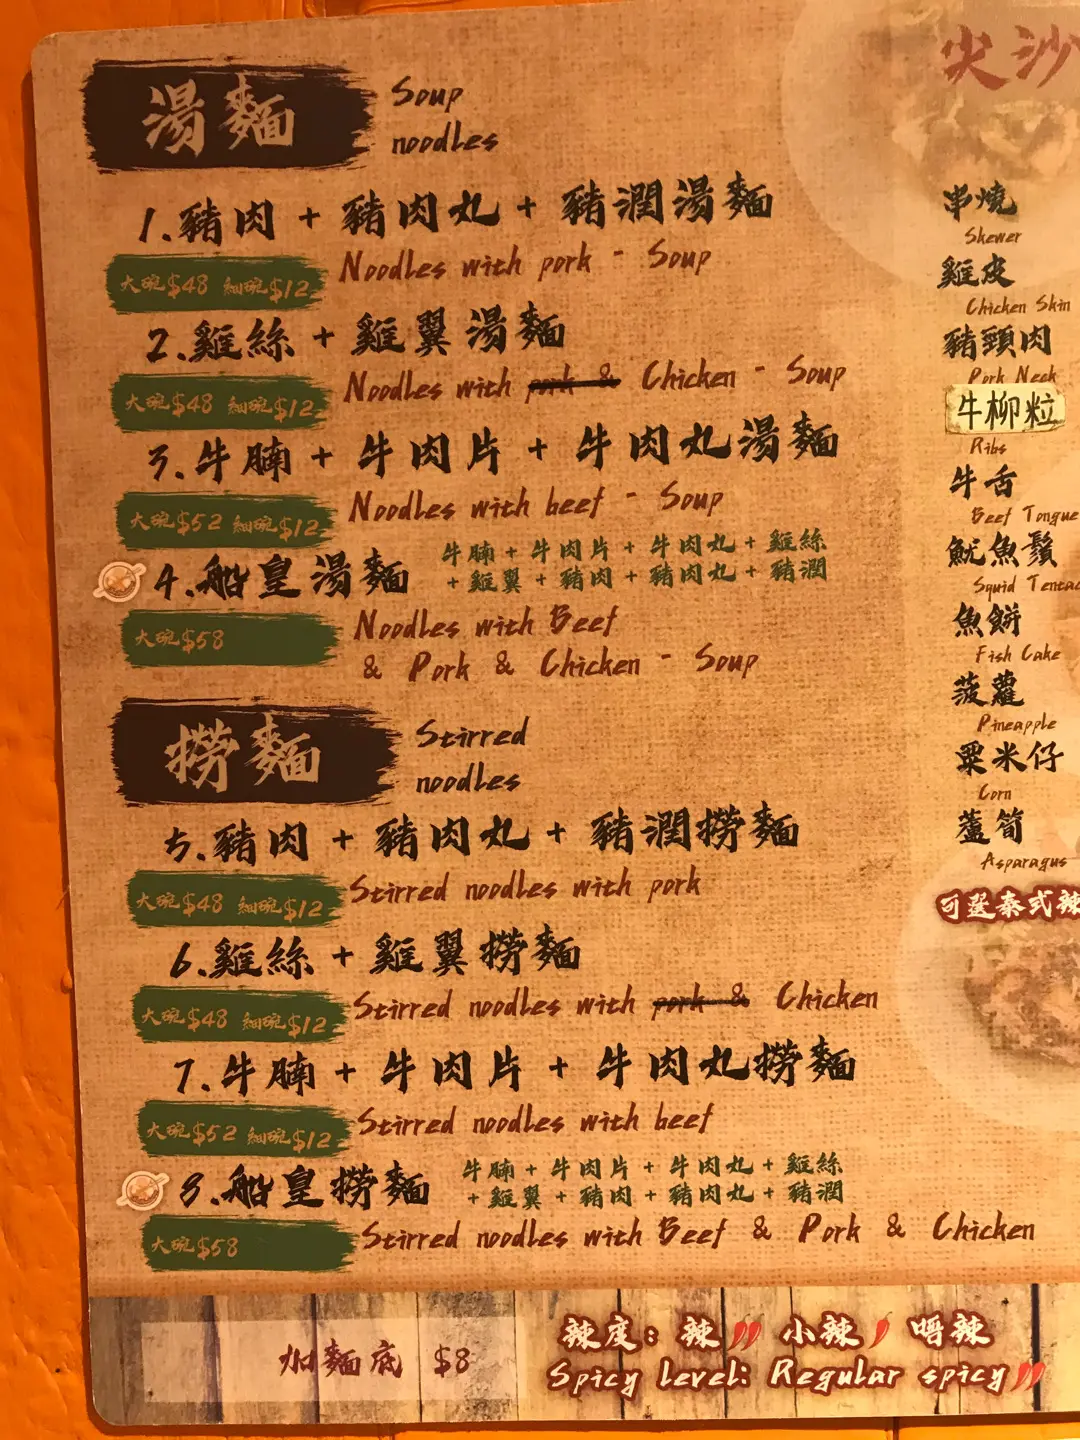 湯麵
Soup
noodles
1.豬肉 + 豬肉丸 + 豬潤湯麵
大碗$48 細碗$12
Noodles with pork - Soup
2.雞絲 + 雞翼湯麵
大碗$48 細碗$12
Noodles with pork & Chicken - Soup
3.牛腩 + 牛肉片 + 牛肉丸湯麵
大碗$52 細碗$12
Noodles with beef - Soup
4.船皇湯麵
牛腩 + 牛肉片 + 牛肉丸 + 雞絲
+ 雞翼 + 豬肉 + 豬肉丸 + 豬潤
大碗$58
Noodles with Beef
& Pork & Chicken - Soup
撈麵
Stirred
noodles
5.豬肉 + 豬肉丸 + 豬潤撈麵
大碗$48 細碗$12
Stirred noodles with pork
6.雞絲 + 雞翼撈麵
大碗$48 細碗$12
Stirred noodles with pork & Chicken
7.牛腩 + 牛肉片 + 牛肉丸撈麵
大碗$52 細碗$12
Stirred noodles with beef
8.船皇撈麵
牛腩 + 牛肉片 + 牛肉丸 + 雞絲
+ 雞翼 + 豬肉 + 豬肉丸 + 豬潤
大碗$58
Stirred noodles with Beef & Pork & Chicken
加麵底 $8
辣度: 辣 小辣 唔辣
Spicy level: Regular spicy
尖沙
串燒
Skewer
雞皮
Chicken Skin
豬頸肉
Pork Neck
牛柳粒
Ribs
牛舌
Beef Tongue
魷魚鬚
Squid Tentac
魚餅
Fish Cake
菠蘿
Pineapple
粟米仔
Corn
蘆筍
Asparagus
可選泰式辣